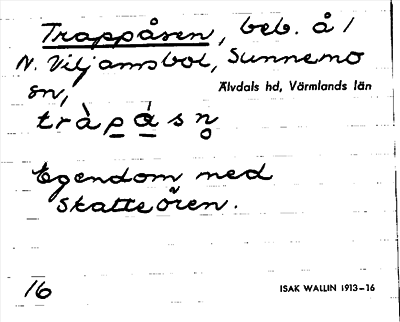 Trappåsen, beb. å 1
N. Viljamsbol, Sunnemo
sn,
Älvdals hd, Värmlands län
tràpásn̥
Egendom med
skatteören.
16
ISAK WALLIN 1913-16